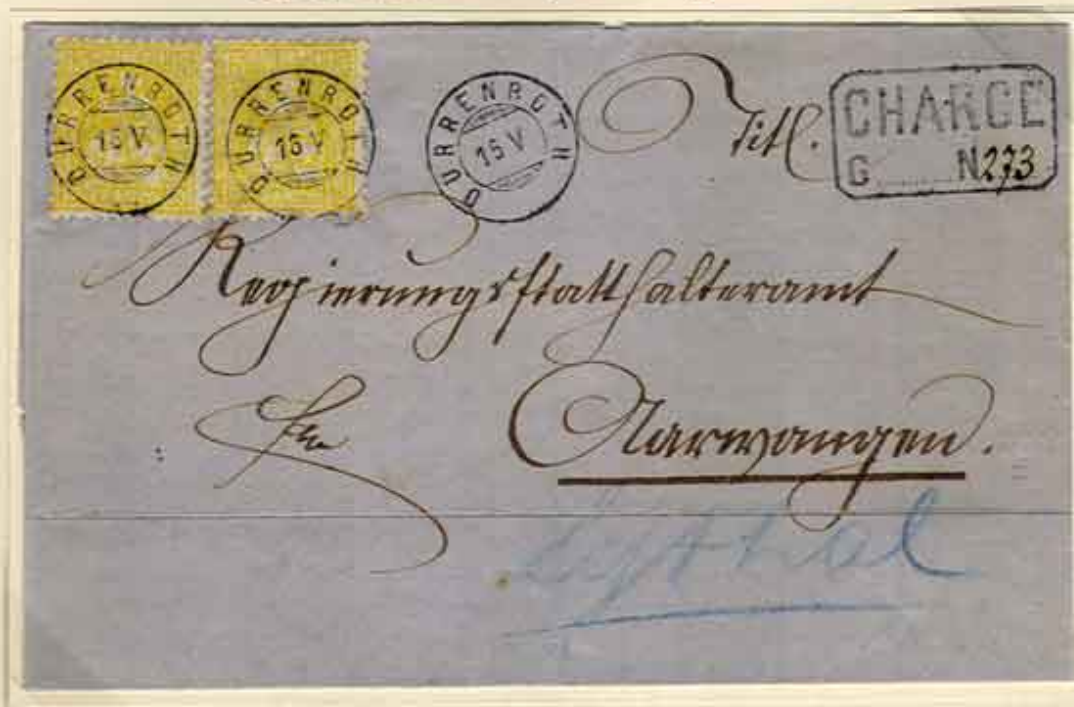 DURRENROTH
15 V
DURRENROTH
15 V
DURRENROTH
15 V
Titl.
CHARGÉ
G N 273
Regierungsstatthalteramt
Aarwangen.